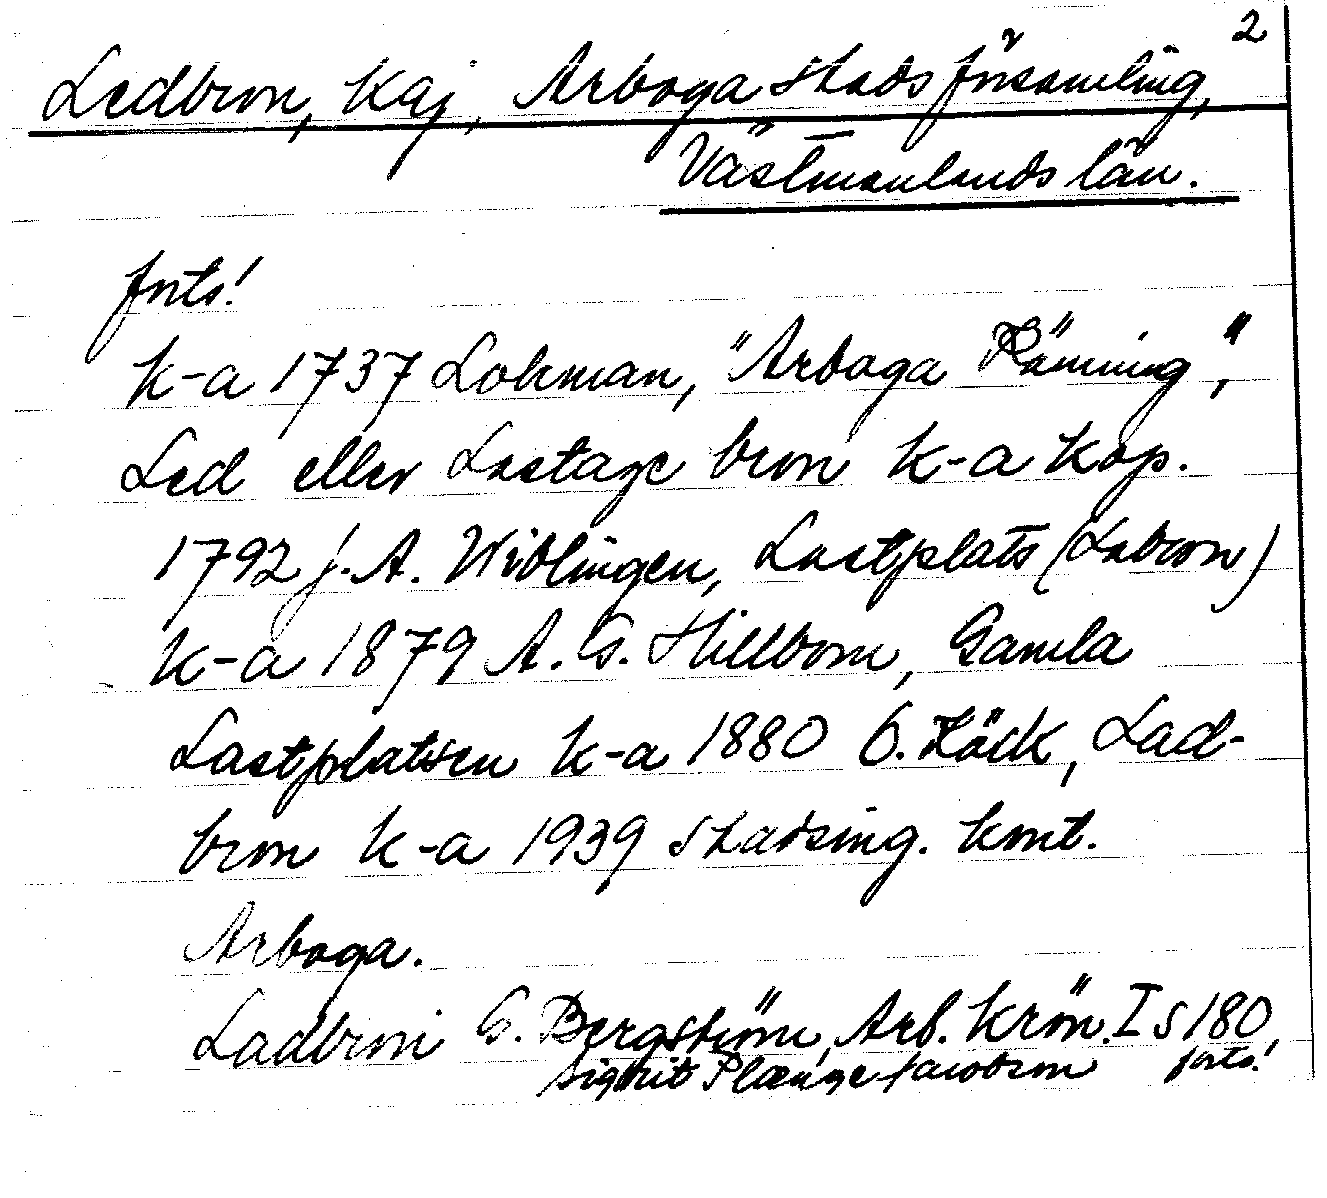 2
Ledbron, Kaj, Arboga stadsförsamling,
Västmanlands län.
forts!
k-a 1737 Lohman, "Arboga Känning",
Led eller Lastage bron k-a kop.
1792 J. A. Widlingen, Lastplats (Labron)
k-a 1879 A. G. Hillbom, Gamla
Lastplatsen k-a 1880 O. Köck, Lad-
bron k-a 1939 stadsing. kont.
Arboga.
Ladbron G. Bergström, Arb. Krön. I s 180,
Sigrit Plænge Jacobson forts!